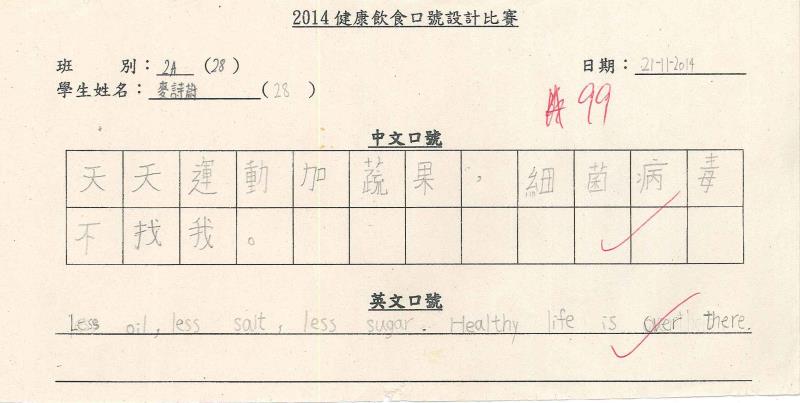 2014健康飲食口號設計比賽
班 別：2A (28) 日期：21-11-2014
學生姓名：麥詩 (28)
99
中文口號
天天運動加蔬果，細菌病毒
不找我。
英文口號
Less oil, less salt, less sugar. Healthy life is over there.